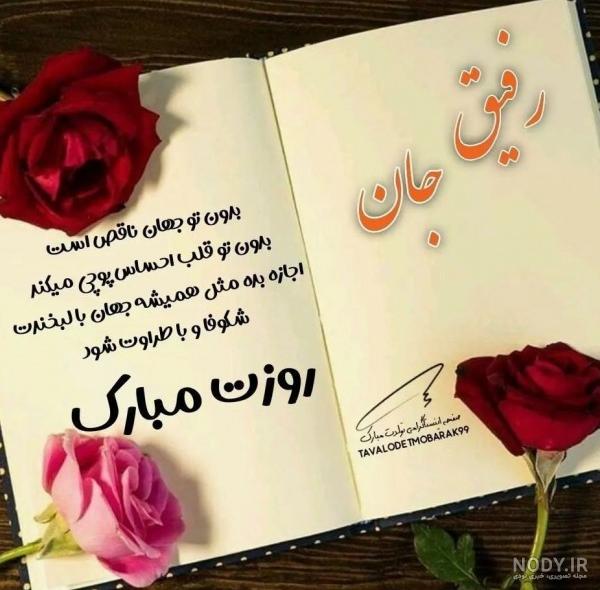 رفیق
جان
بدون تو جهان ناقص است
بدون تو قلب احساس پوچی میکند
اجازه بده مثل همیشه جهان با لبخندت
شکوفا و با طراوت شود
روزت مبارک
صفحه اینستاگرامی تولدت مبارک
TAVALODETMOBARAK99
NODY.IR
مجله تصویری، خبری نودی